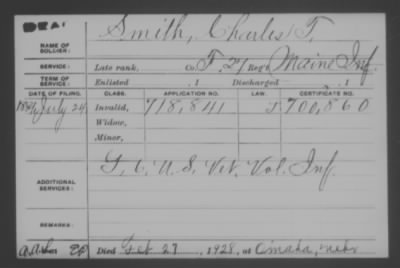 DEAD
Smith, Charles T.
NAME OF SOLDIER:
SERVICE: Late rank, Co. F, 29 Reg't Maine Inf.
TERM OF SERVICE: Enlisted , 1 Discharged , 1
DATE OF FILING. CLASS. APPLICATION NO. LAW. CERTIFICATE NO.
July 24 Invalid, 718,841 700,860
Widow,
Minor,
ADDITIONAL SERVICES: U.S. Vet. Vol. Inf.
REMARKS:
Died Feb 27, 1928, at Omaha, Nebr